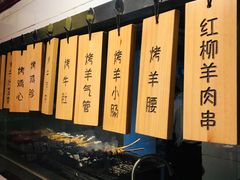 红柳羊肉串
烤羊腰
烤羊小肠
烤羊气管
烤牛肚
烤鸡珍
烤鸡心